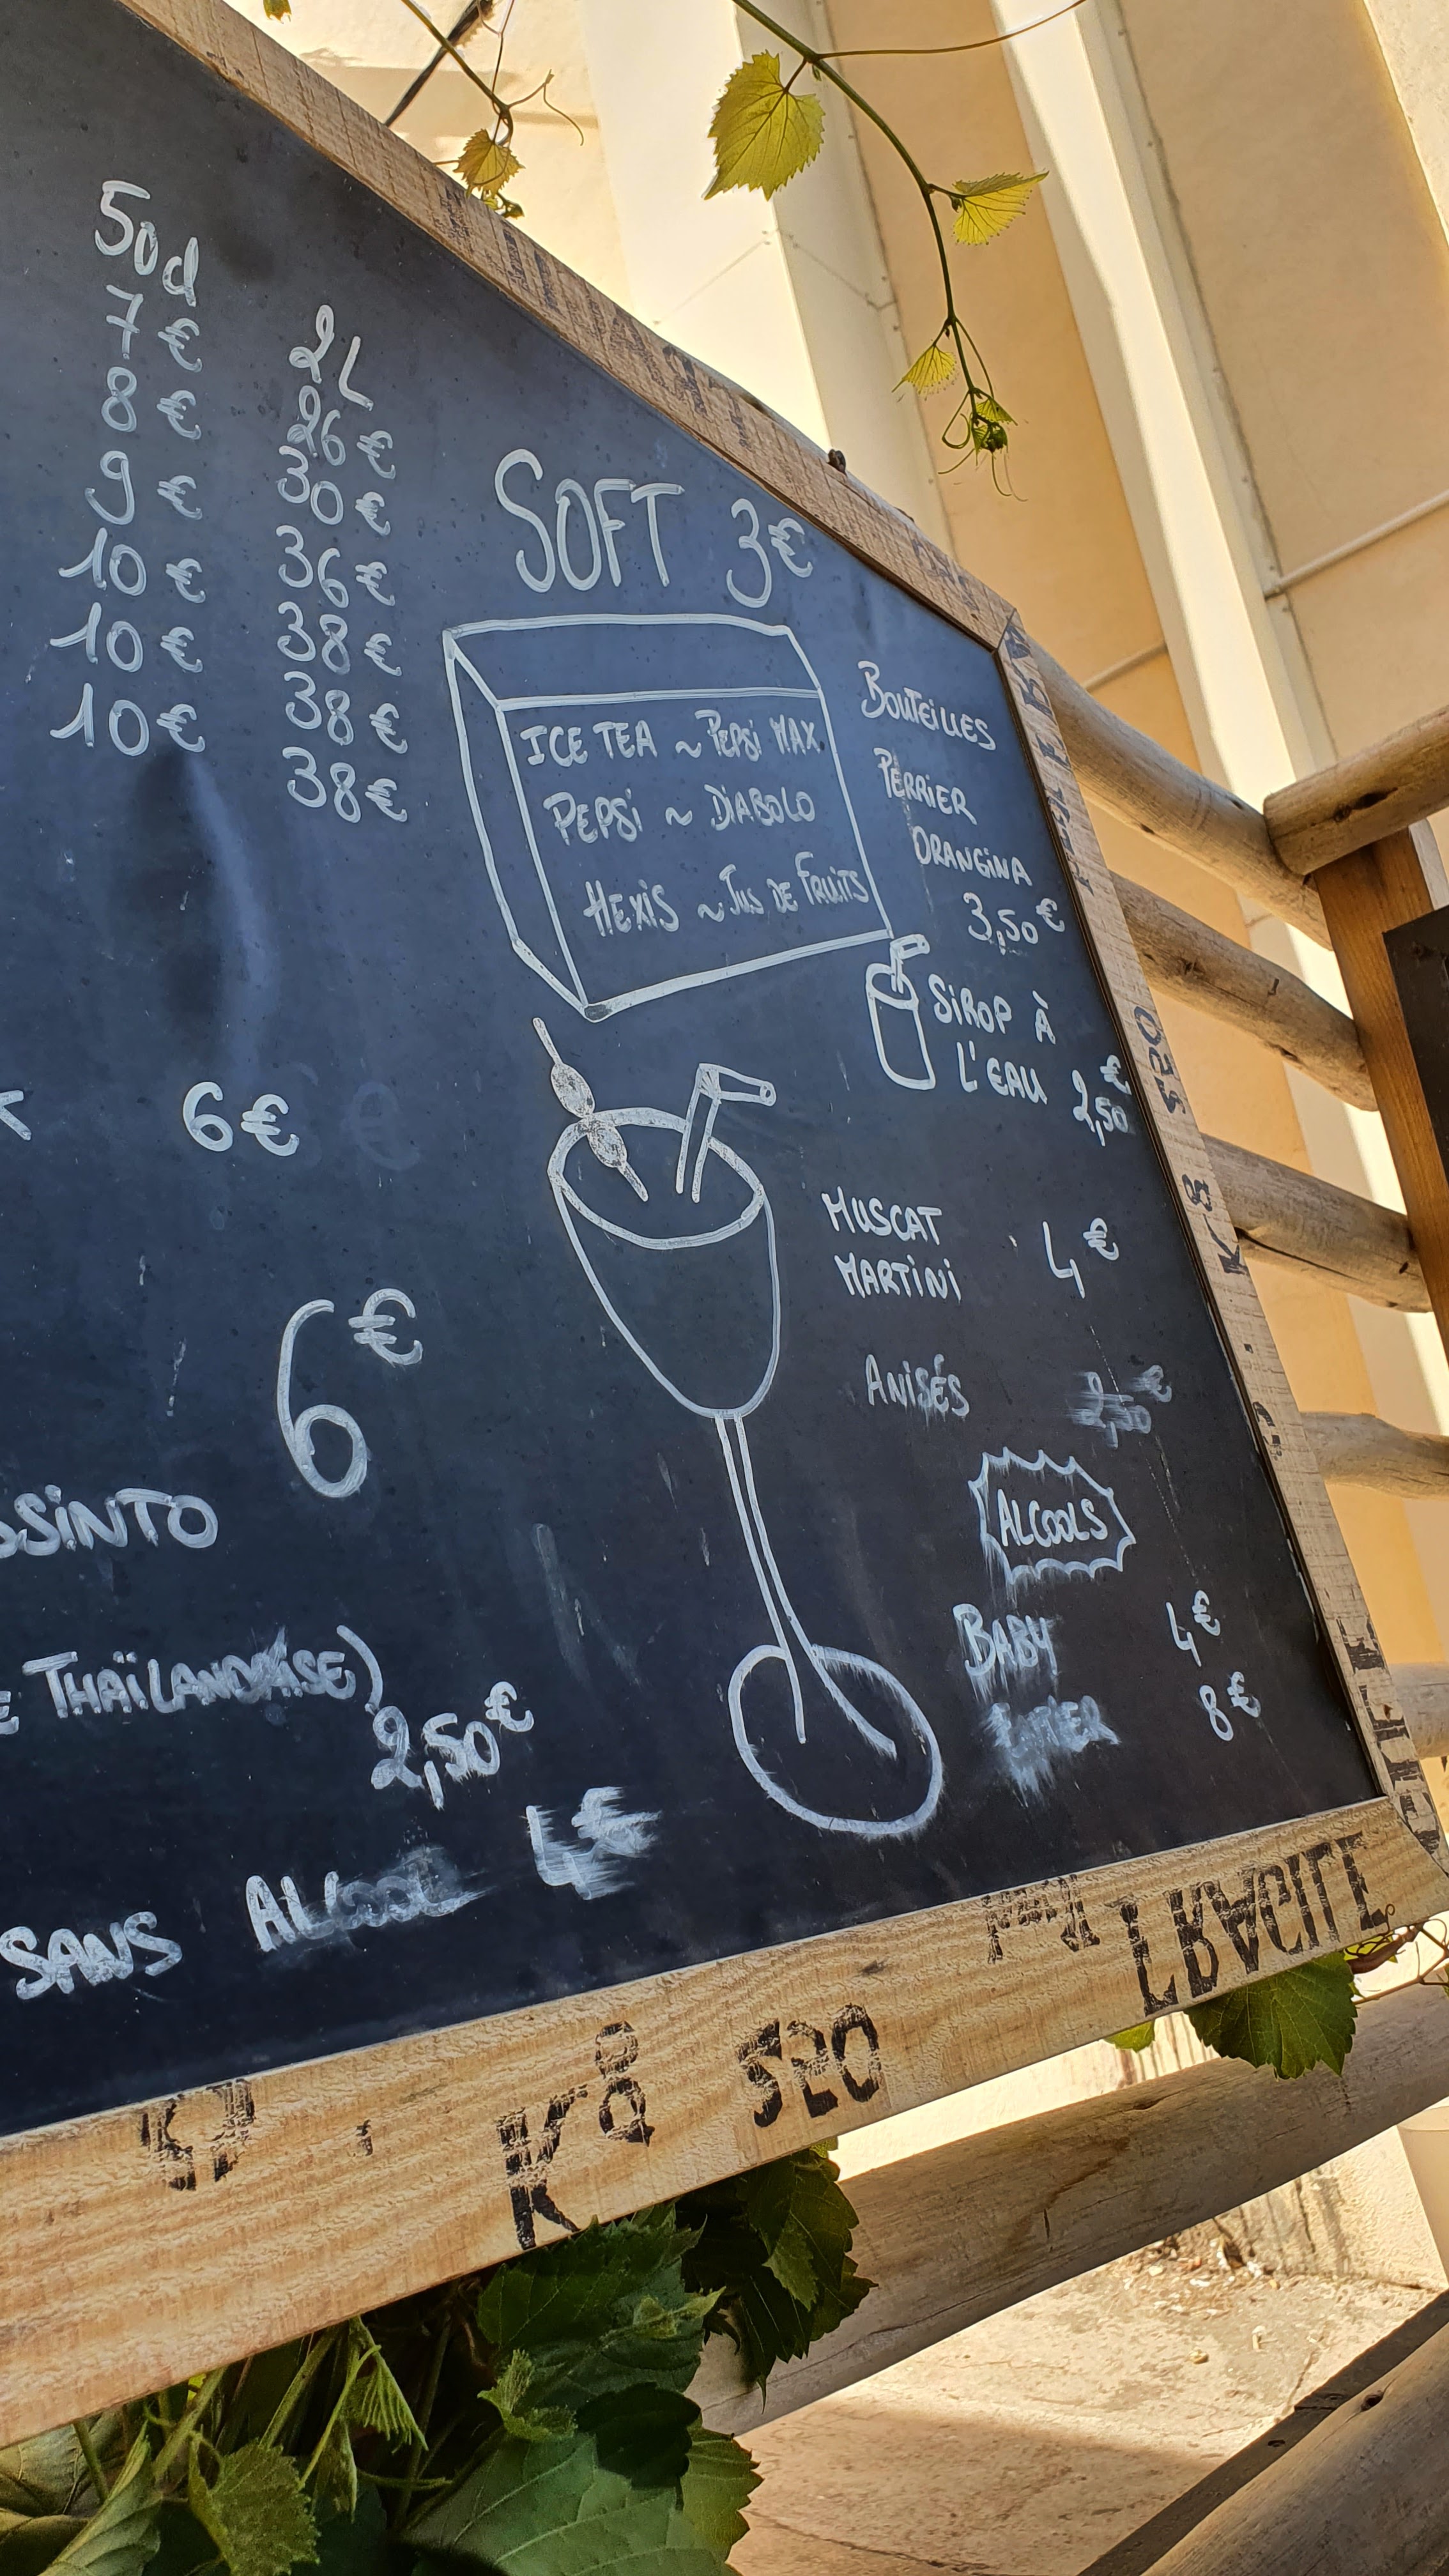 50cl 2L
7€ 26€
8€ 30€
9€ 36€
10€ 38€
10€ 38€
10€ 38€
SOFT 3€
ICE TEA ~ PEPSI MAX
PEPSI ~ DIABOLO
HEXIS ~ JUS DE FRUITS
BOUTEILLES
PERRIER
ORANGINA
3,50€
SIROP À
L'EAU 2,50€
6€
MUSCAT
MARTINI 4€
6€
ANISÉS 2,50€
OSSINTO
ALCOOLS
THAÏLANDAISE)
2,50€
BABY 4€
ENTIER 8€
SANS ALCOOL 4€
K8 S20
K8 S20